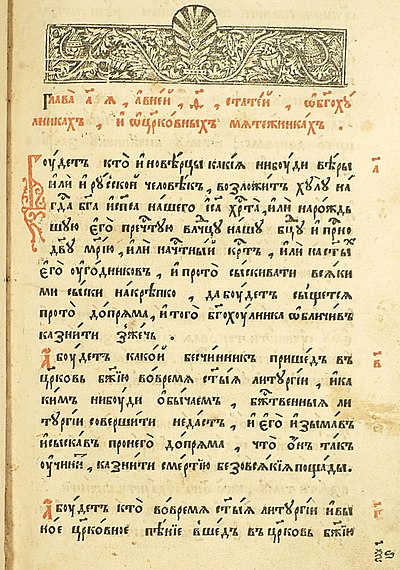 Глава̀ а҃ ꙗ , а҆вне́й , ѳ҃ , стате́й , ѡ҆бг҃охꙋ́
лникахъ , и҆ ѡ҆цр҃ко́вныхъ мѧте́жникахъ .
Бꙋ́детъ кто̀ и҆нове́рцы какі́ѧ нибꙋ́ди ве́ры
и҆лѝ и҆ рꙋ́сской человѣ́къ , возложи́тъ хꙋлꙋ̀ на
гд҃а бг҃а и҆ сп҃са на́шего і҆с҃а хрⷭ҇та̀ , и҆лѝ нарожд̾
шꙋю є҆го̀ пречⷭ҇тꙋю влⷣчцꙋ на́шꙋ бцⷣꙋ и҆ прⷭ҇но
дв҃ꙋ мр҃і́ю , и҆лѝ начⷭ҇тны́й крⷭ҇тъ , и҆лѝ наст҃ы́хъ
є҆го̀ ᲂу҆го́дниковъ , и҆ прото̀ сы́скивати всѧ́ки
ми сы́ски накрѣ́пко , да бꙋ́детъ сы́щетсѧ
прото̀ допрѧ́ма , и҆ того̀ бг҃охꙋ́лника ѡ҆бличи́въ
казни́ти зже́чь .
А҆ бꙋ́детъ како́й безчи́нникъ прише́дъ въ
цр҃ковь бж҃ію вовре́мѧ ст҃ы́ѧ литꙋргі́и , и҆ ка
ки́мъ нибꙋ́ди ѡ҆бы́чаемъ , бжⷭ҇твенныѧ ли
тꙋргі́и соверши́ти неда́стъ , и҆ є҆го̀ и҆зыма́въ
и҆ сыска́въ пронего̀ допрѧ́ма , что ѻ҆́нъ та́къ
ᲂу҆чини́тъ , казни́ти сме́ртію безовсѧ́кіѧ поща́ды .
А҆ бꙋ́детъ кто̀ вовре́мѧ ст҃ы́ѧ литꙋргі́и и҆ вы
ное цр҃ко́вное пѣ́ніе вше́дъ въ цр҃ковь бж҃ію